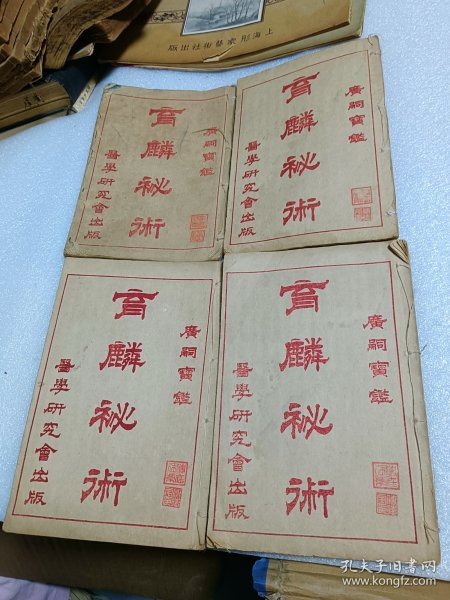 上海形象藝術社出版
廣嗣寶鑑
育麟祕術
醫學研究會出版
廣嗣寶鑑
育麟祕術
醫學研究會出版
廣嗣寶鑑
育麟祕術
醫學研究會出版
廣嗣寶鑑
育麟祕術
醫學研究會出版
孔夫子旧书网
www.kongfz.com